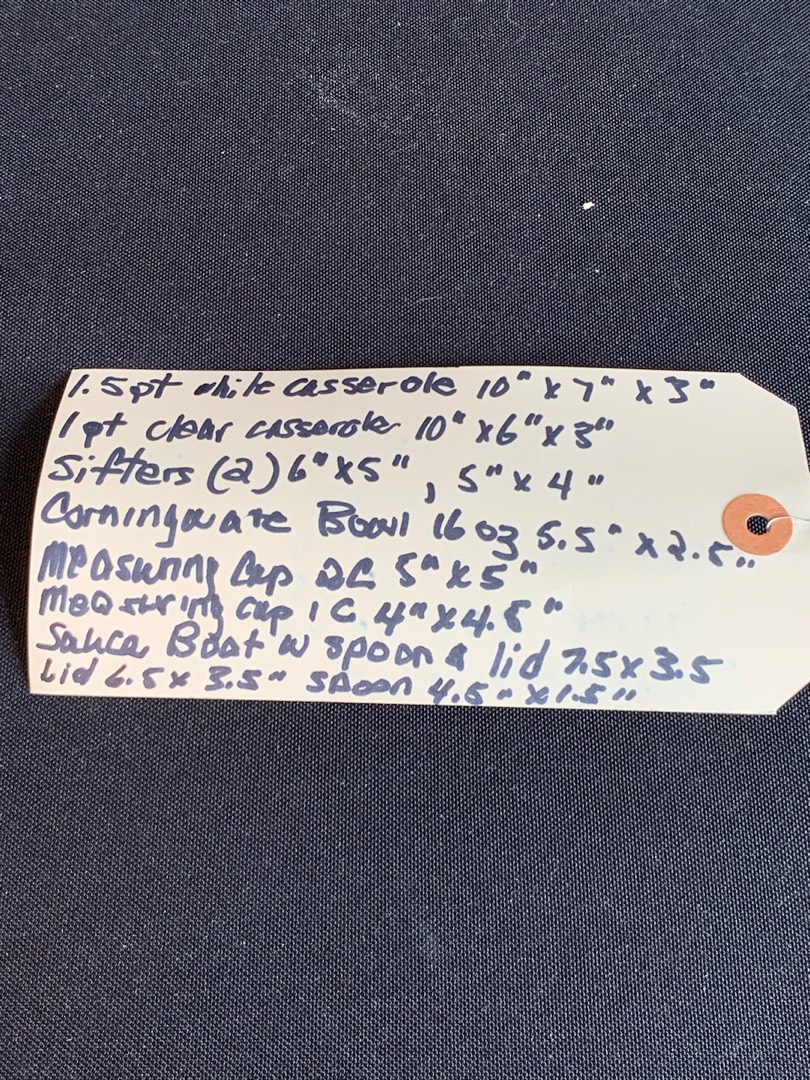 1.5 pt white casserole 10" x 7" x 3"
1 pt clear casserole 10" x 6" x 3"
Sifters (2) 6" x 5", 5" x 4"
Corningware Bowl 16 oz 5.5" x 2.5"
Measuring Cup 2C 5" x 5"
Measuring cup 1 C 4" x 4.5"
Sauce Boat w spoon & lid 7.5 x 3.5
Lid 6.5 x 3.5" spoon 4.5" x 1.5"